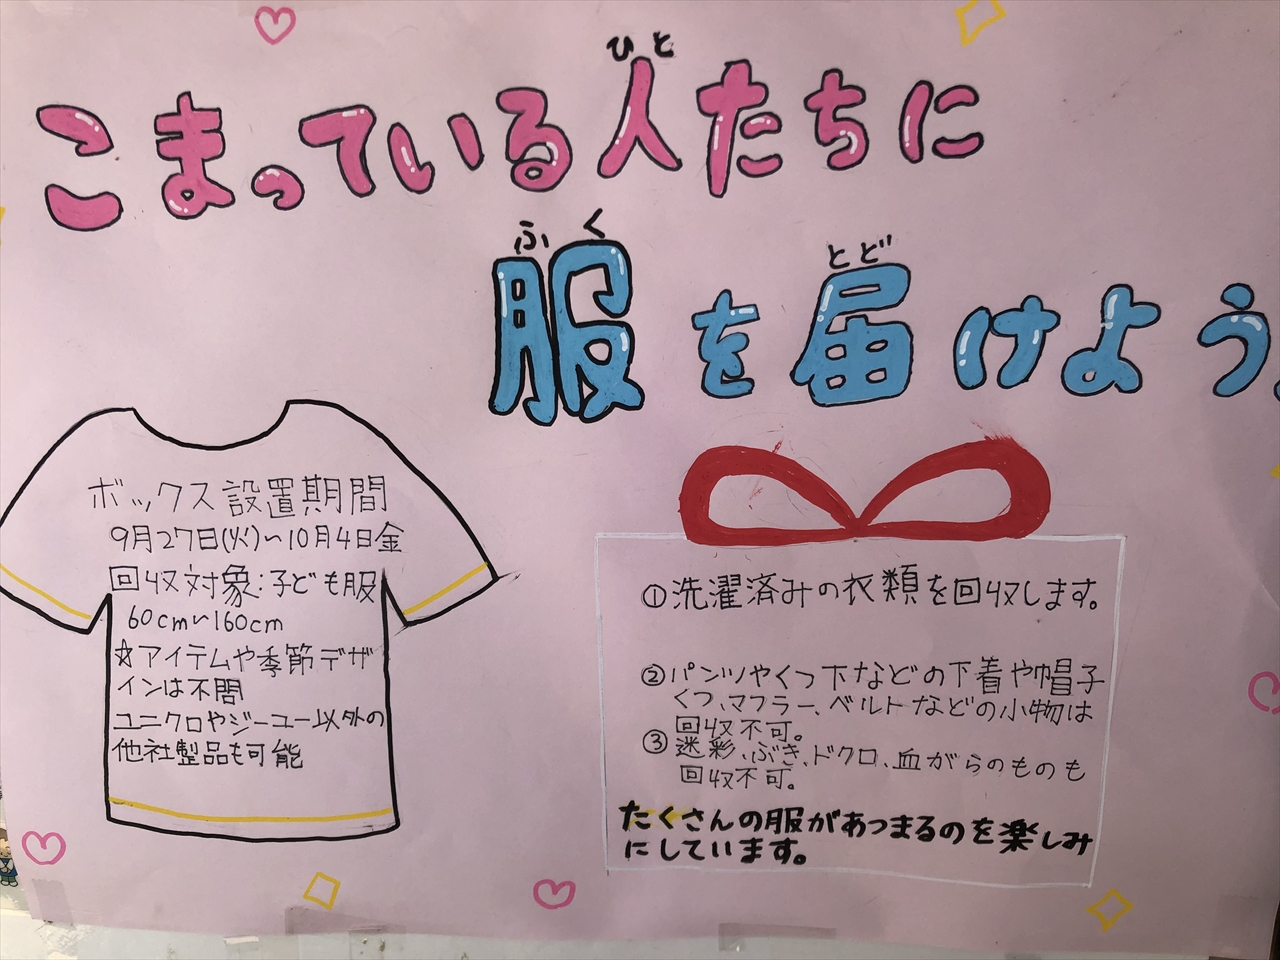 こまっている人たちに
ひと
服を届けよう。
ふく とど
ボックス設置期間
9月27日(火)〜10月4日金
回収対象:子ども服
60cm〜160cm
☆アイテムや季節デザ
インは不問
ユニクロやジーユー以外の
他社製品も可能
①洗濯済みの衣類を回収します。
②パンツやくつ下などの下着や帽子
くつ、マフラー、ベルトなどの小物は
回収不可。
③迷彩、ぶき、ドクロ、血がらのものも
回収不可。
たくさんの服があつまるのを楽しみ
にしています。